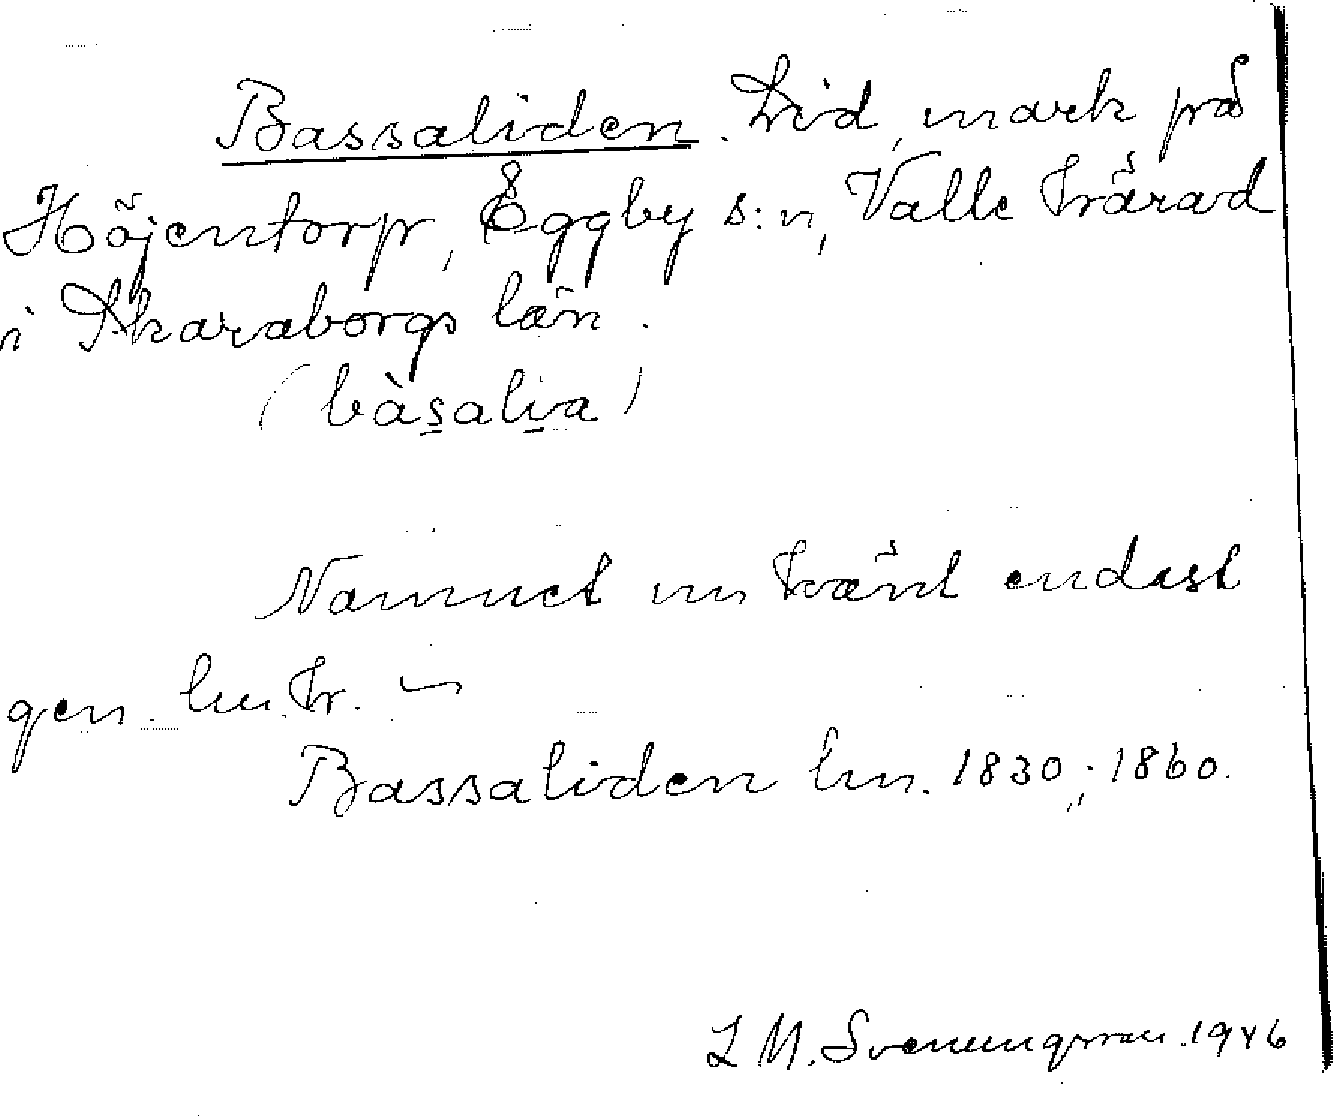 Bassaliden. Lid, mark på
Höjentorp, Eggby s:n, Valle härad
i Skaraborgs län.
(bàs̱alia)
Namnet un känt endast
gen. lm. hr. –
Bassaliden lm. 1830; 1860.
L M. Svenungsson. 1946